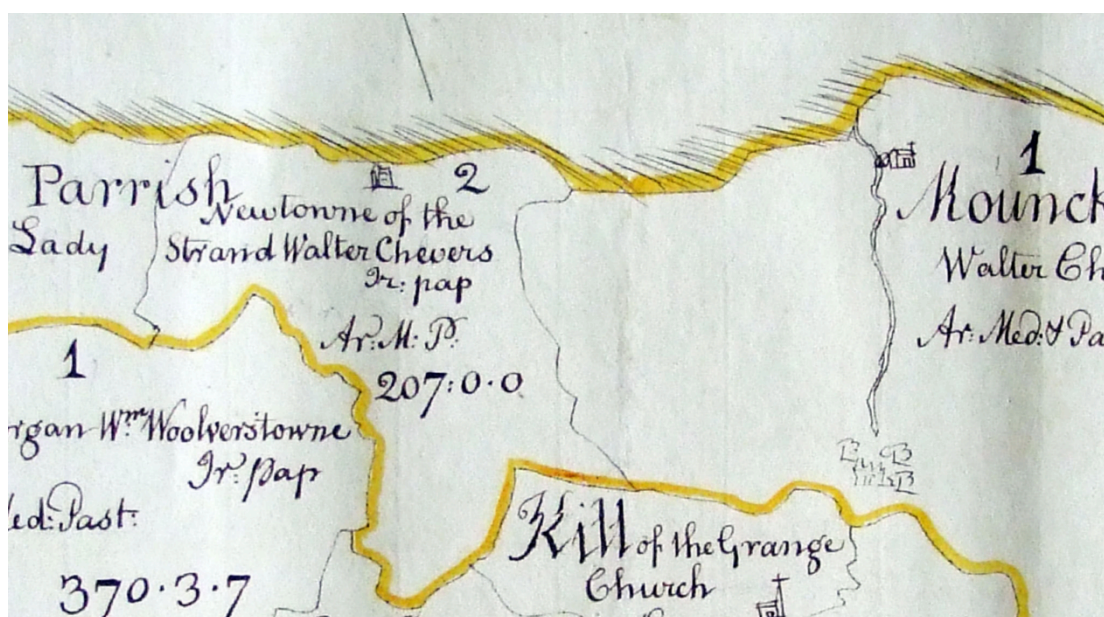 Parrish
Lady
2
Newtowne of the
Strand Walter Chevers
Ir: pap
Ar: M: P:
207:0·0
1
Mounck
Walter Ch
Ar: Med: & Pa
1
rgan Wm Woolverstowne
Ir: pap
ed: Past:
370·3·7
Kill of the Grange
Church